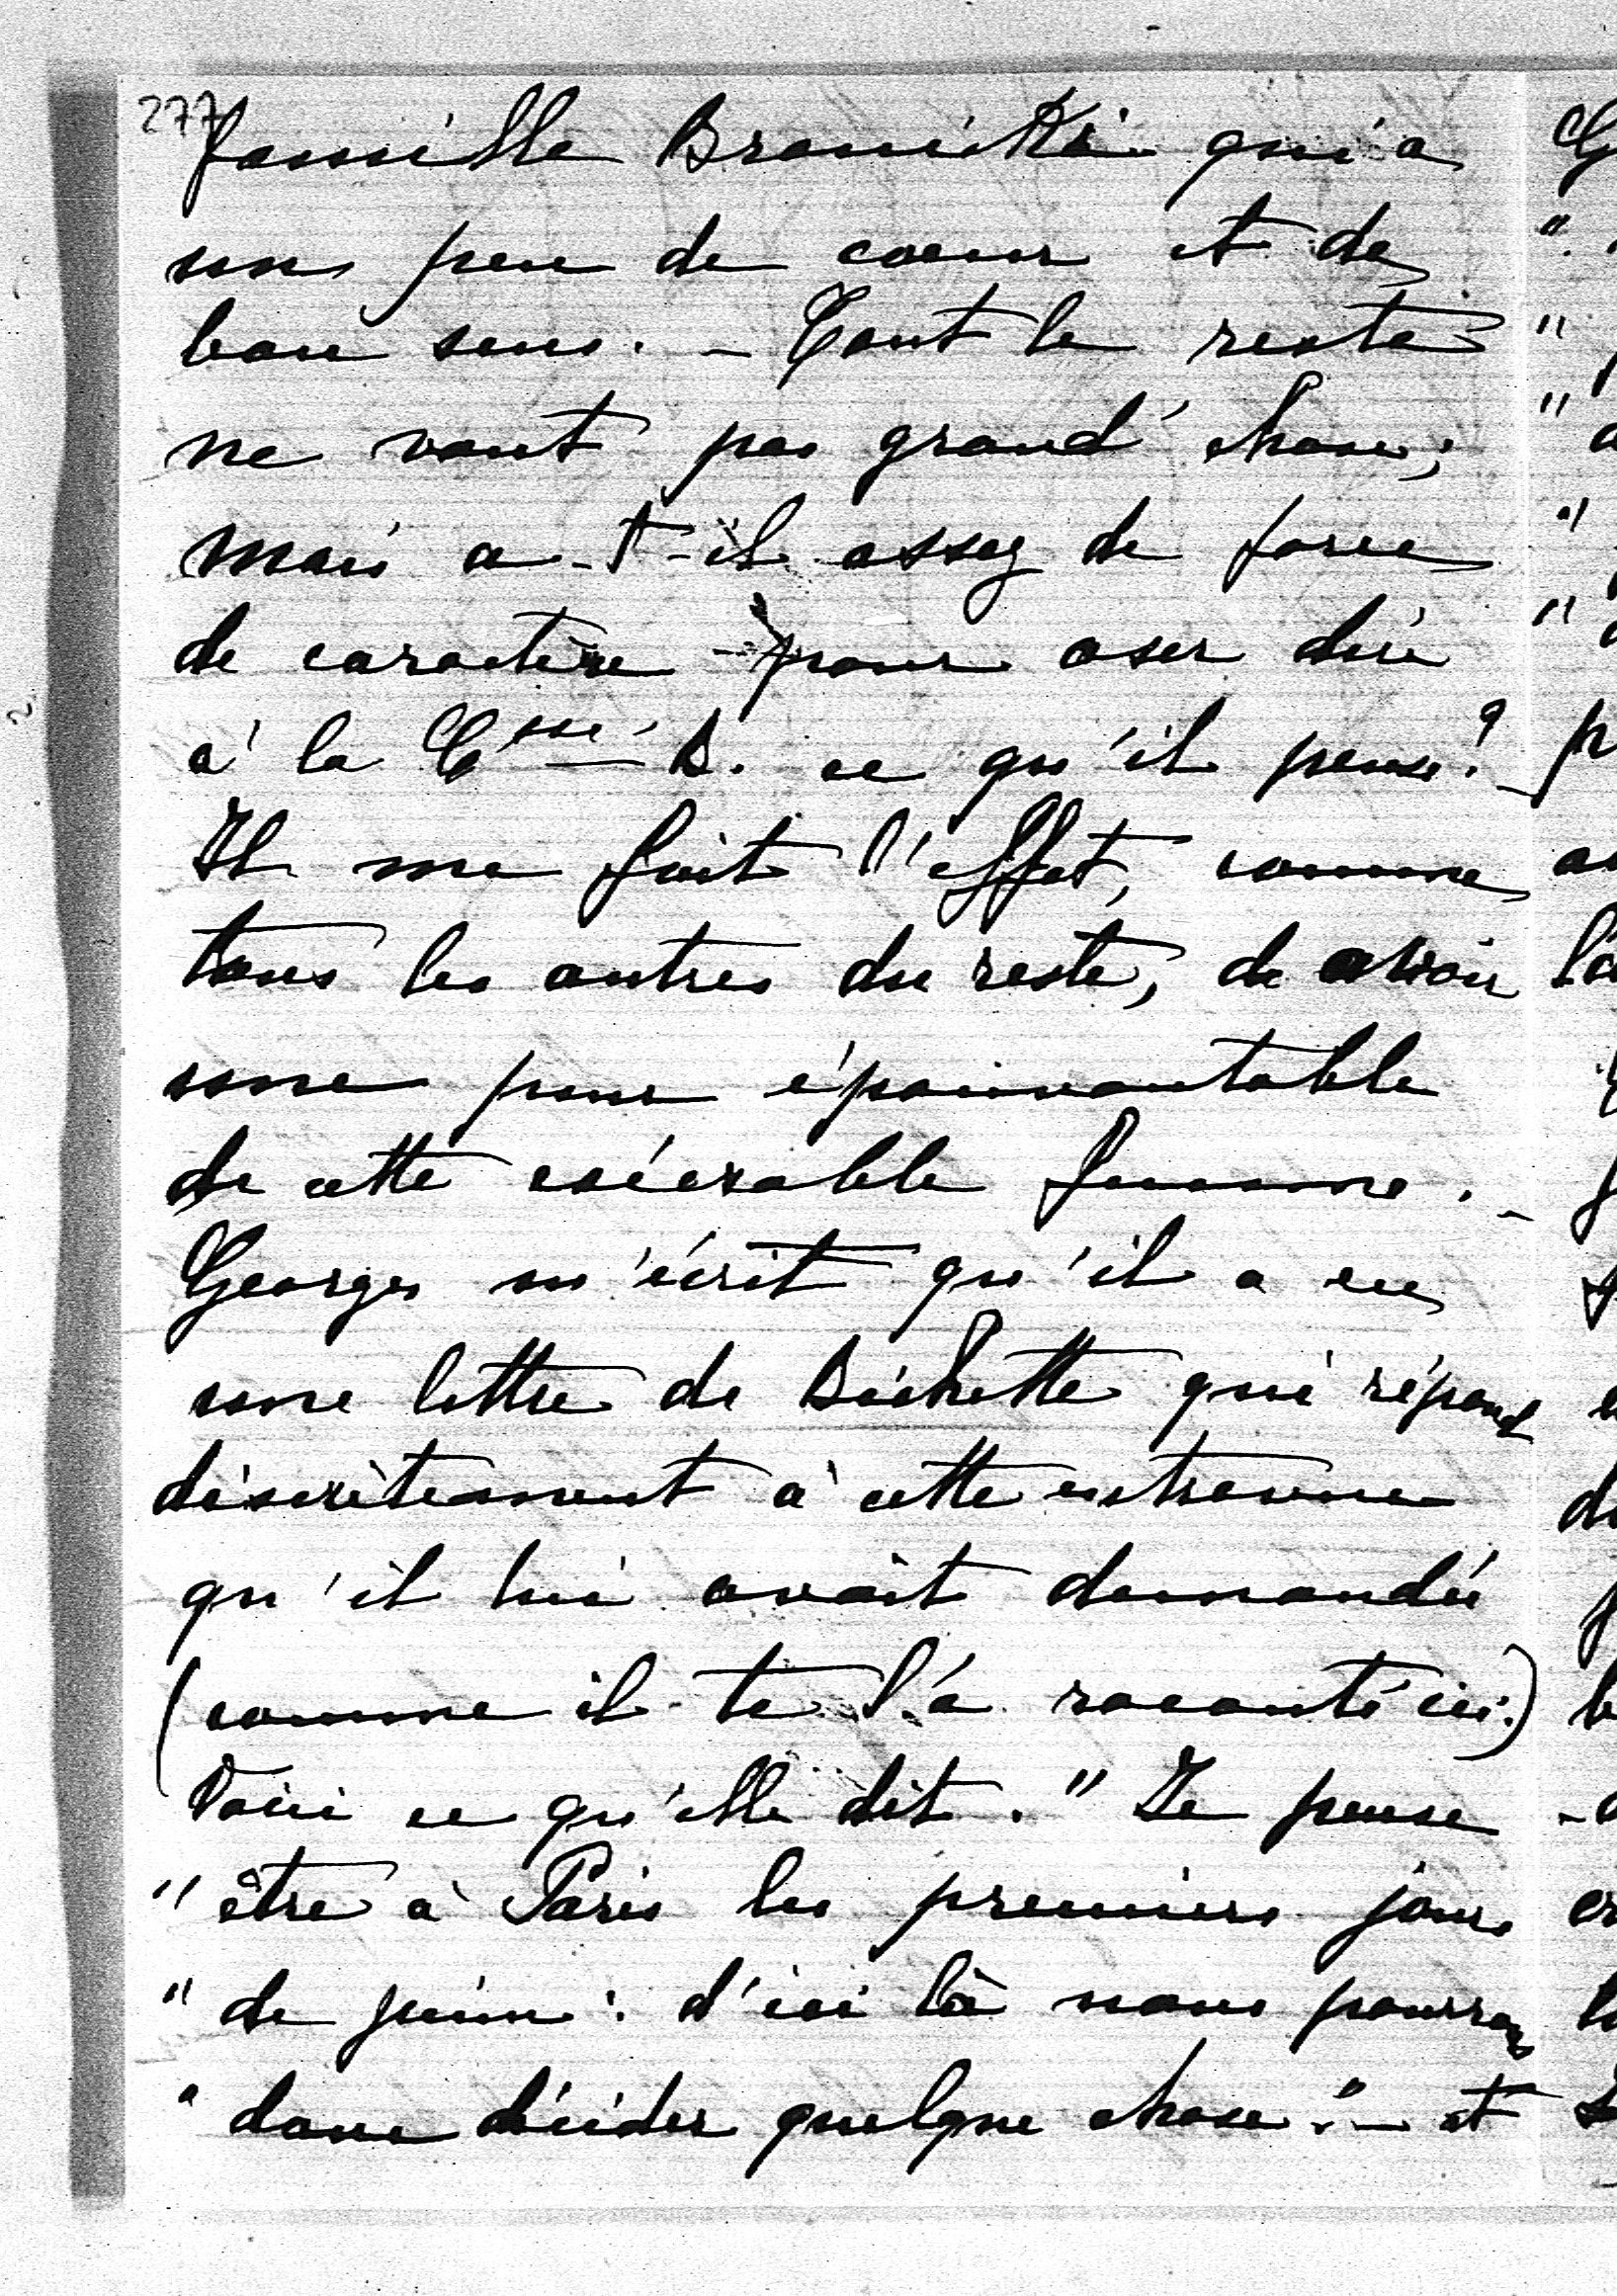 277
famille Branicki qui a
un peu de coeur et de
bon sens. - Tout le reste
ne vaut pas grand'chose;
mais a-t-il assez de force
de caractère pour oser dire
à la Ctesse B. ce qu'il pense? -
Il me fait l'effet, comme
tous les autres du reste, d'avoir
une peur épouvantable
de cette exécrable femme. -
Georges m'écrit qu'il a eu
une lettre de Bichette qui répond
discrètement à cette entrevue
qu'il lui avait demandée
(comme il te l'a raconté ici.)
Voici ce qu'elle dit. "Je pense
"être à Paris les premiers jours
"de juin: d'ici là nous pourrons
"donc décider quelque chose." - et